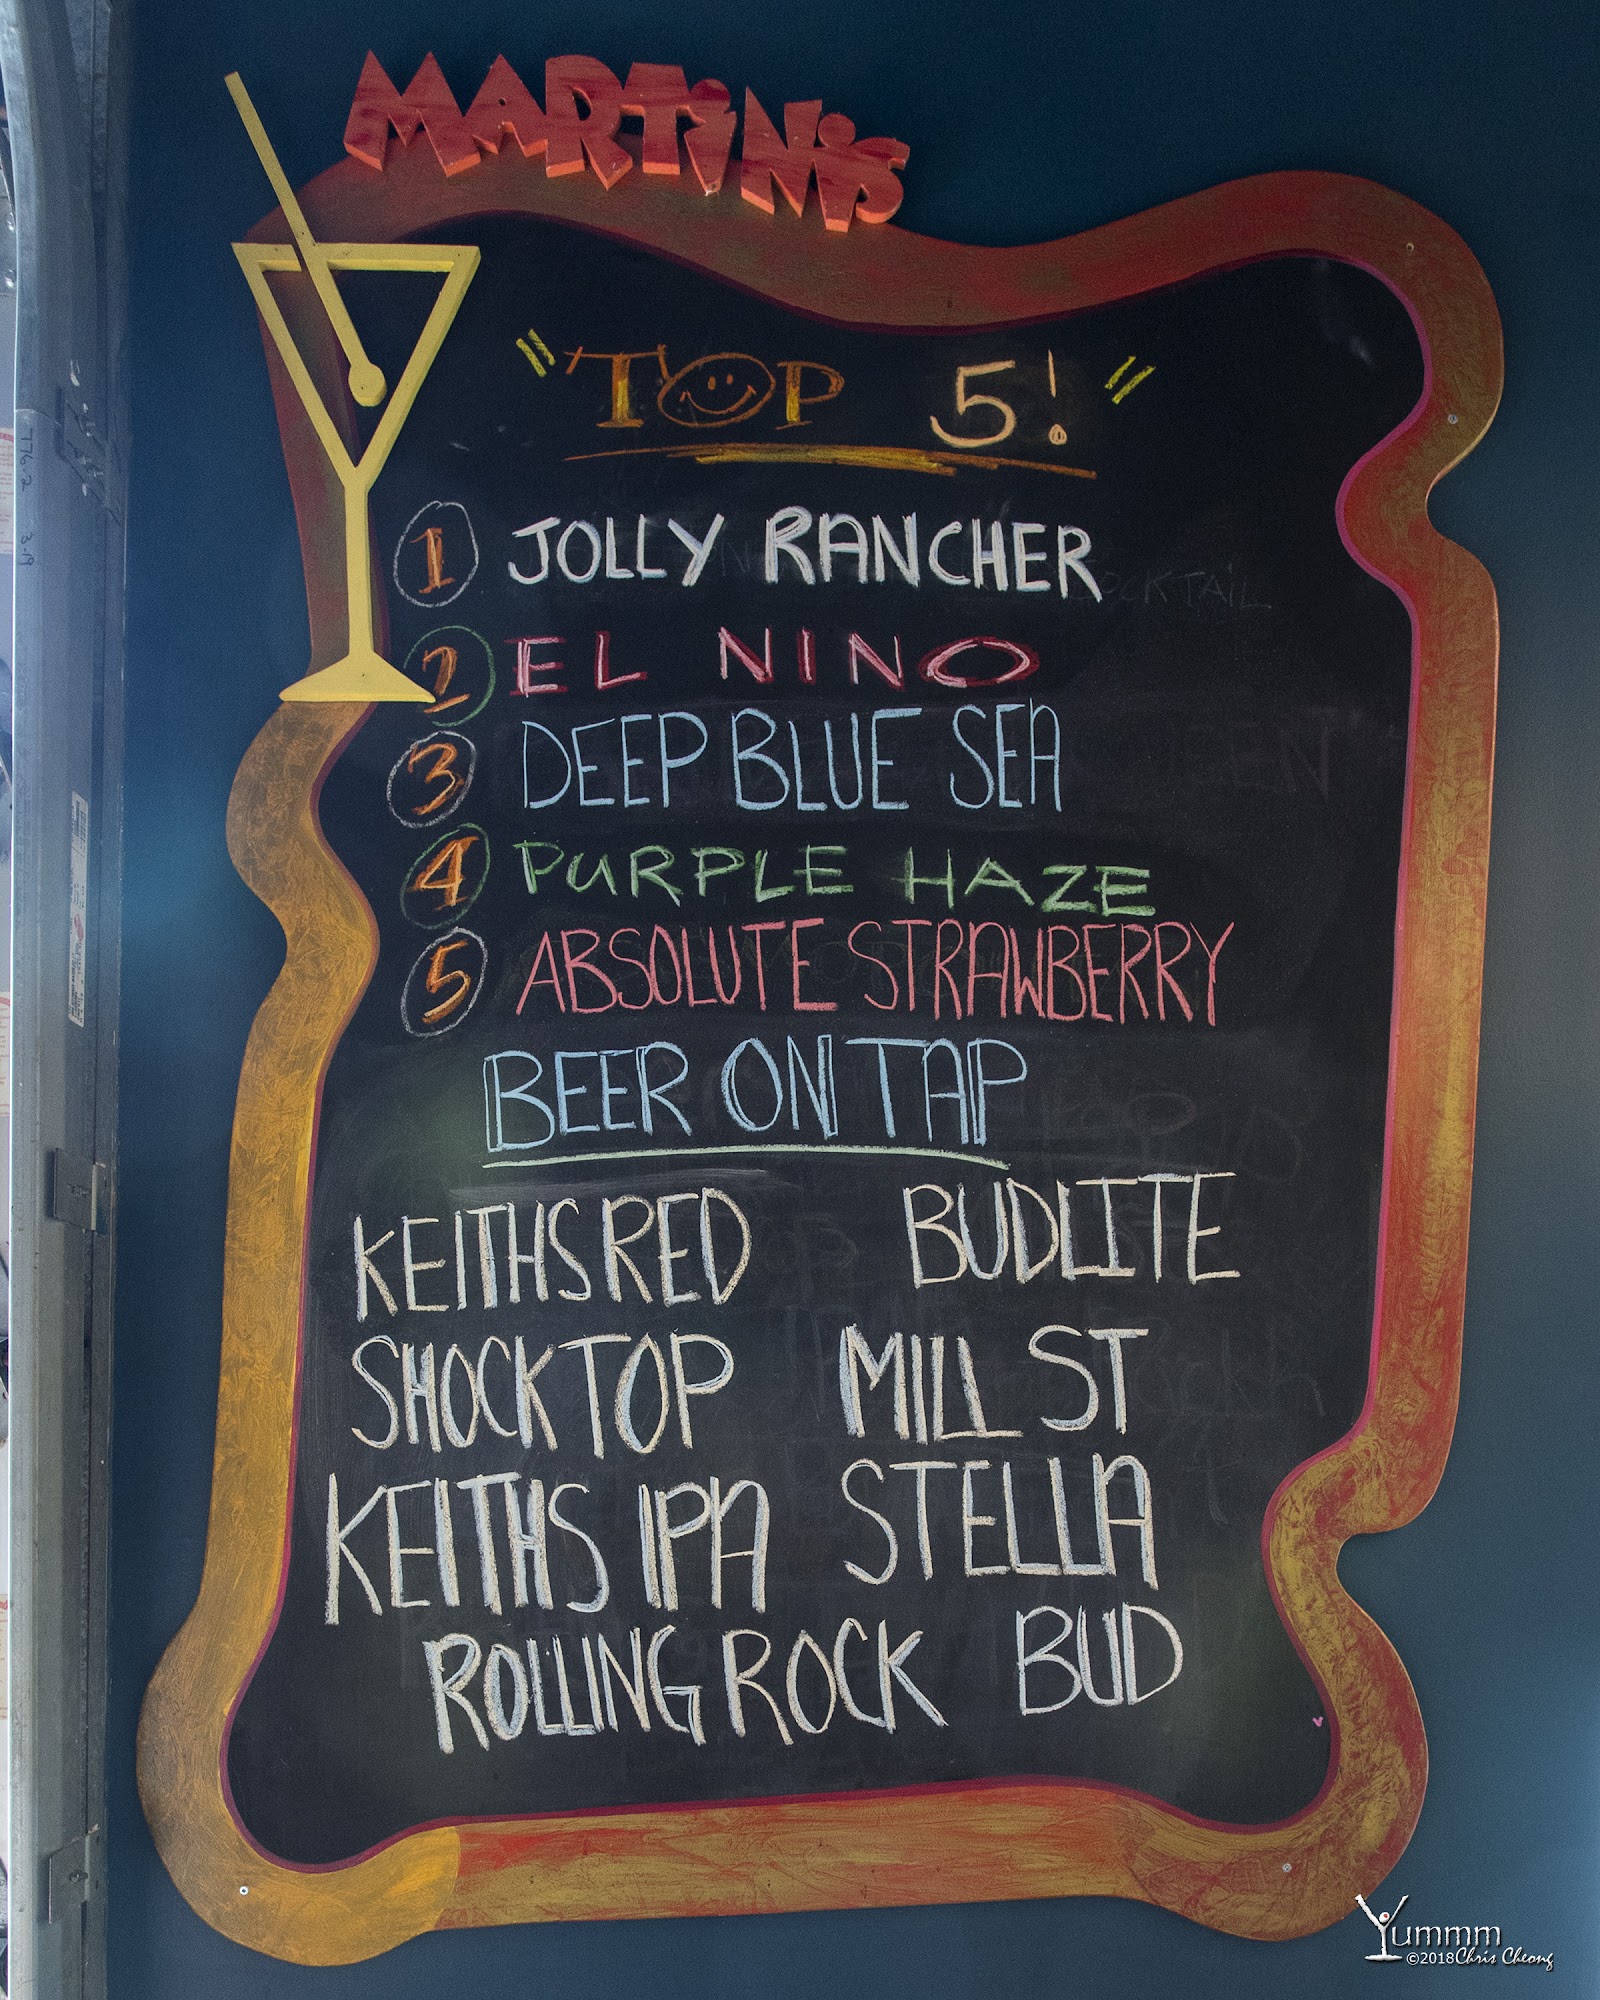 MARTINIS
"TOP 5!"
1 JOLLY RANCHER
2 EL NINO
3 DEEP BLUE SEA
4 PURPLE HAZE
5 ABSOLUTE STRAWBERRY
BEER ON TAP
KEITHS RED BUDLITE
SHOCKTOP MILL ST
KEITHS IPA STELLA
ROLLING ROCK BUD
Yummm
©2018 Chris Cheong